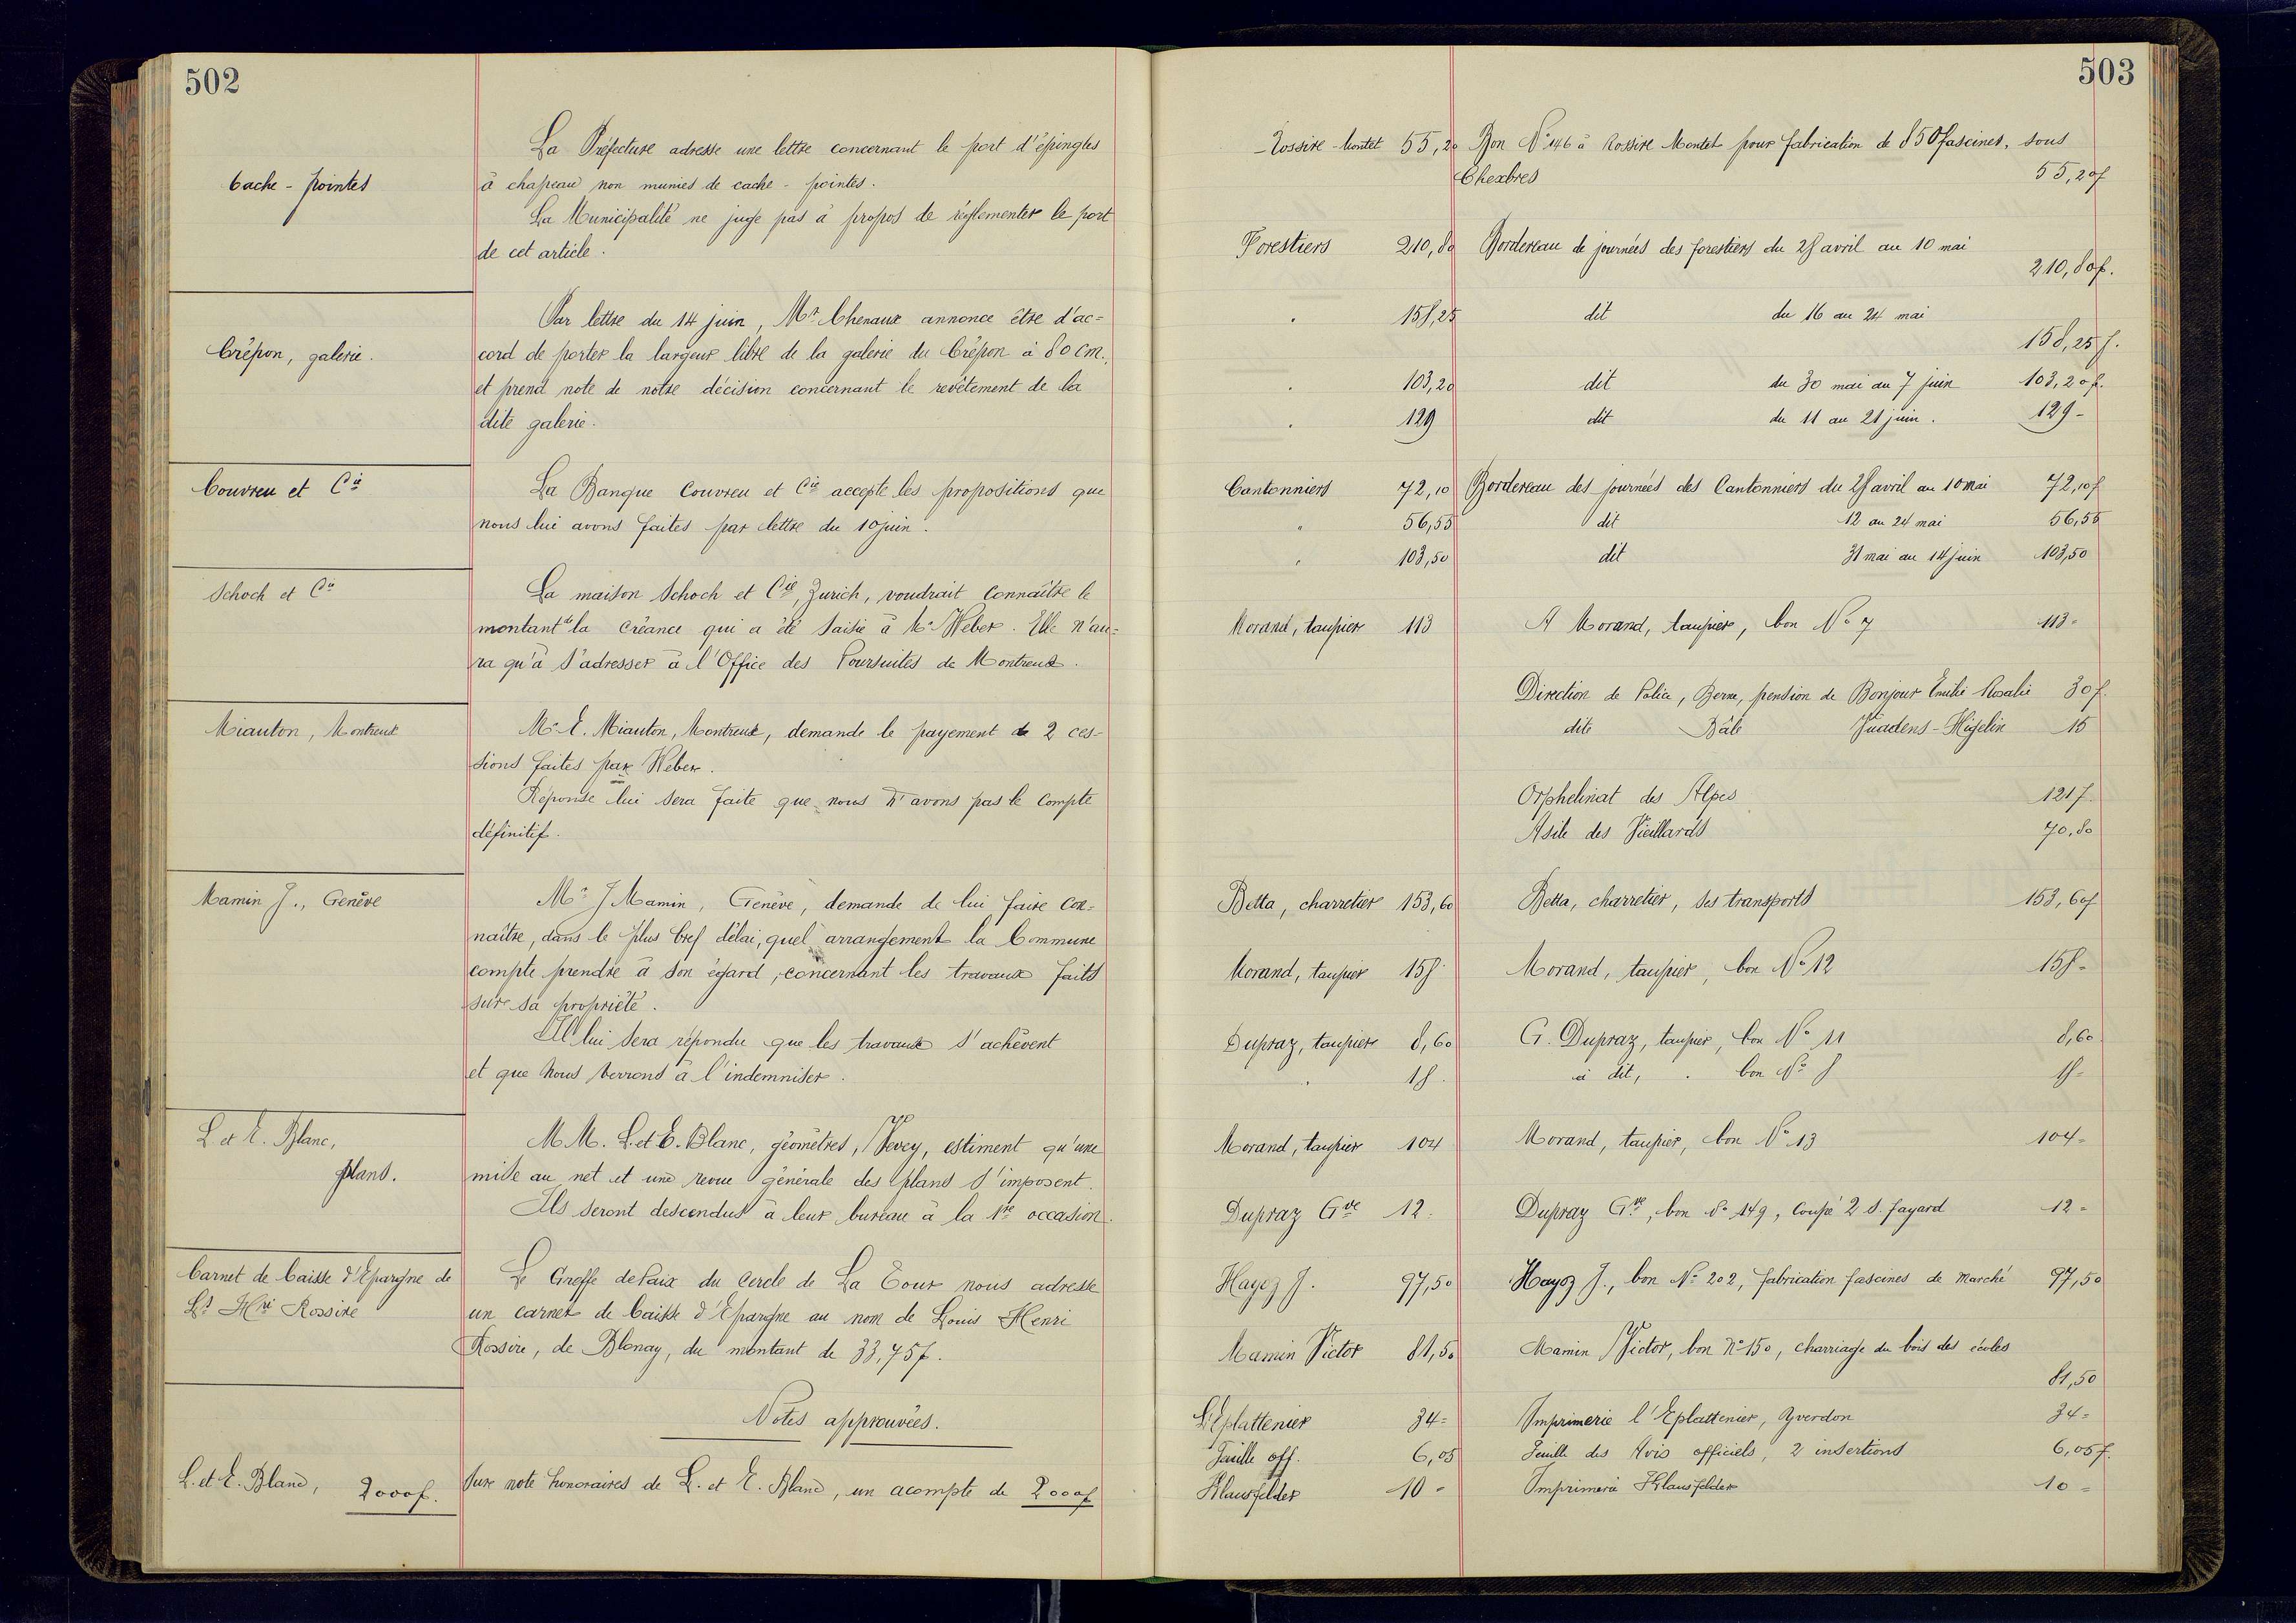 502
La Préfecture adresse une lettre concernant le port d'épingles
Cache-pointes
à chapeau non munies de cache-pointes.
La Municipalité ne juge pas à propos de réglementer le port
de cet article.
Par lettre du 14 juin, Mr Chenaux annonce être d'ac=
Crêpon, galerie.
cord de porter la largeur libre de la galerie du Crêpon à 80 cm.,
et prend note de notre décision concernant le revêtement de la
dite galerie.
Couvreu et Cie
La Banque Couvreu et Cie accepte les propositions que
nous lui avons faites par lettre du 10 juin.
Schoch et Cie
La maison Schoch et Cie, Zurich, voudrait connaître le
montant de la créance qui a été saisie à Mr Weber. Elle n'au=
ra qu'à s'adresser à l'Office des Poursuites de Montreux.
Miauton, Montreux
Mr E. Miauton, Montreux, demande le payement de 2 ces-
sions faites par Weber.
Réponse lui sera faite que nous n'avons pas le compte
définitif.
Mamin J., Genève
Mr J Mamin, Genève, demande de lui faire con=
naître, dans le plus bref délai, quel arrangement la Commune
compte prendre à son égard, concernant les travaux faits
sur sa propriété.
Il lui sera répondu que les travaux s'achèvent
et que nous verrons à l'indemniser.
L. et E. Blanc,
plans.
M.M. L. et E. Blanc, géomètres, Vevey, estiment qu'une
mise au net et une revue générale des plans s'imposent.
Ils seront descendus à leur bureau à la 1re occasion.
Carnet de Caisse d'Epargne de
Ls Hri Rossire
Le Greffe de Paix du Cercle de La Tour nous adresse
un carnet de Caisse d'Epargne au nom de Louis Henri
Rossire, de Blonay, du montant de 33,75 f.
Notes approuvées.
L. et E. Blanc, 2000 f.
Sur note honoraires de L. et E. Blanc, un acompte de 2000 f
503
Rossire-Montet 55,20 Bon No 146 à Rossire Montet pour fabrication de 850 fascines, sous
Chexbres 55,20 f
Forestiers 210,80 Bordereau de journées des forestiers du 28 avril au 10 mai
210,80 f.
" 158,25 dit du 16 au 24 mai
158,25 f.
" 103,20 dit du 30 mai au 7 juin 103,20 f.
" 129 dit du 11 au 21 juin. 129-
Cantonniers 72,10 Bordereau des journées des Cantonniers du 28 avril au 10 mai 72,10 f
" 56,55 dit 12 au 24 mai 56,55
" 103,50 dit 31 mai au 14 juin 103,50
Morand, taupier 113 A Morand, taupier, bon No 7 113-
Direction de Police, Berne, pension de Bonjour Emilie Rosalie 30 f.
dite Bâle Vuadens-Higelin 15
Orphelinat des Alpes 121 f.
Asile des Vieillards 70,80
Betta, charretier 153,60 Betta, charretier, ses transports 153,60 f
Morand, taupier 158 Morand, taupier, bon No 12 158-
Dupraz, taupier 8,60 G. Dupraz, taupier, bon No 11 8,60
" 18. à dit, " bon No 8 18-
Morand, taupier 104 Morand, taupier, bon No 13 104-
Dupraz Gve 12. Dupraz Gve, bon No 149, coupe 2 s. fayard 12=
Hayoz J. 97,50 Hayoz J., bon No 202, fabrication fascines de Marché 97,50
Mamin Victor 81,50 Mamin Victor, bon No 150, charriage du bois des écoles
81,50
L'Eplattenier 34= Imprimerie l'Eplattenier, Yverdon 34=
Feuille off. 6,05 Feuille des Avis officiels, 2 insertions 6,05 f.
Klausfelder 10- Imprimerie Klausfelder 10=